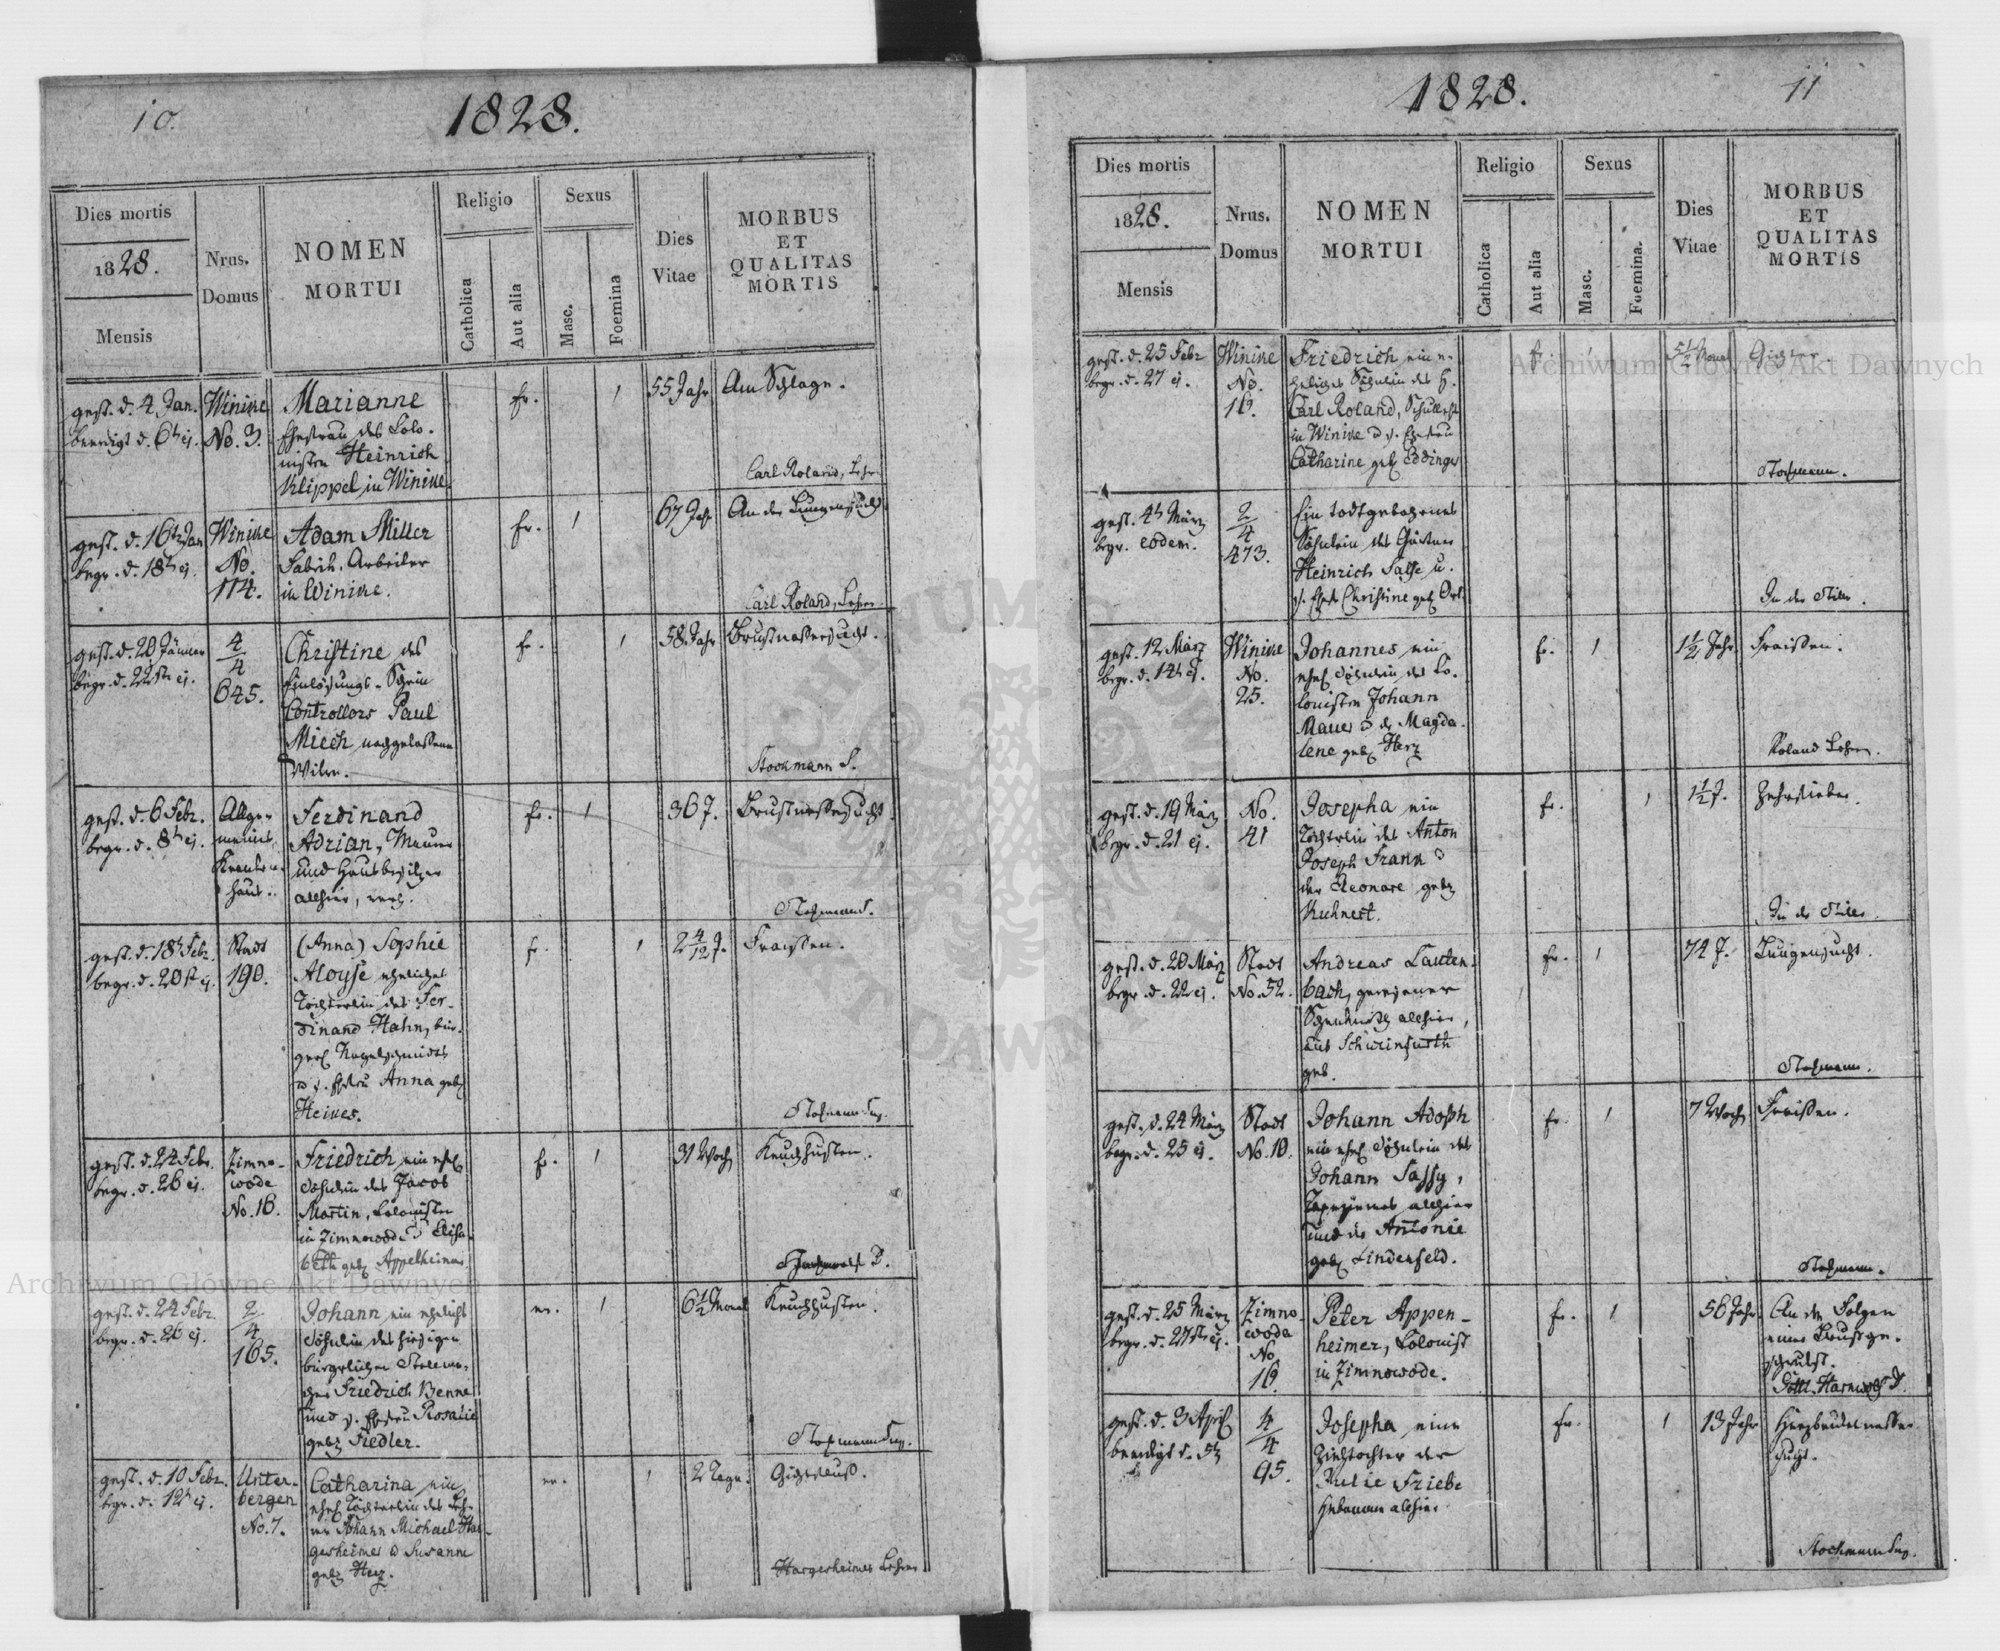 10.
1828.
Dies mortis
1828.
Mensis
Nrus.
Domus
NOMEN
MORTUI
Religio
Catholica
Aut alia
Sexus
Masc.
Foemina
Dies
Vitae
MORBUS
ET
QUALITAS
MORTIS
gest. d. 4 Jan.
beerdigt d. 6t ej.
Winike
No. 3.
Marianne
Ehefrau des Colo-
nisten Heinrich
Klippel in Winike
1
55 Jahr
Am Schlage.
Carl Roland, Lehr
gest. d. 16t Jan
begr. d. 18t ej.
Winike
No.
114.
Adam Miller
Fabrik-Arbeiter
in Winike.
1
67 Jahr
An der Lungensucht
Carl Roland, Lehrer
gest. d. 20 Jänner
begr. d. 22st ej.
4
4
645.
Christine des
Einlösungs-Schein
Controllors Paul
Miech nachgelassene
Witwe.
1
58 Jahr
Brustwassersucht.
Stockmann S.
gest. d. 6 Febr.
begr. d. 8t ej.
Allge-
meines
Kranken-
haus.
Ferdinand
Adrian, Maurer
und Hausbesitzer
allhier, verh.
1
36 J.
Brustwassersucht.
gest. d. 18t Febr.
begr. d. 20st ej.
Stadt
190.
(Anna) Sophie
Aloyse eheliches
Töchterlein des Fer-
dinand Hahn, bür-
gerl Nagelschmidts
u s. Ehefrau Anna geb
1
2 4/12 J.
Fraissen.
gest. d. 24 Febr.
begr. d. 26 ej.
Zimno-
wode
No. 16.
Friedrich ein ehel
Söhnlein des Jacob
Martin, Colonisten
in Zimnowode u Elisa-
beth geb Appelheimer
1
31 Woch
Keuchhusten.
gest. d. 24 Febr.
begr. d. 26 ej.
2
4
165.
Johann ein ehelich
Söhnlein des hiesigen
bürgerlichen
Friedrich Benne
und s. Ehefrau Rosalie
geb Fiedler.
1
6 1/2 Monat
Keuchhusten.
gest. d. 10 Febr.
begr. d. 12t ej.
Unter-
bergen
No. 7.
Catharina ein
ehel Töchterlein des Leh-
rer Johann Michael Har-
gesheimer u Susanne
geb Herz.
1
2 Tage.
Hargesheimer Lehrer
1828.
11
Dies mortis
1828.
Mensis
Nrus.
Domus
NOMEN
MORTUI
Religio
Catholica
Aut alia
Sexus
Masc.
Foemina.
Dies
Vitae
MORBUS
ET
QUALITAS
MORTIS
gest. d. 25 Febr
begr. d. 27 ej.
Winike
No.
16.
Friedrich ein e-
heliches Söhnlein des H.
Carl Roland,
in Winike u s. Ehefrau
Catharine geb Eddinger
1
5 1/2 Monat
gest. 4t März
begr. eodem.
2
4
473.
Ein todtgebohrnes
Söhnlein des Gärtner
Heinrich Salße u.
s. Ehefr Christine geb
In der Stille.
gest. 12 März
begr. d. 14t ej.
Winike
No.
25.
Johannes ein
ehel Söhnlein des Co-
lonisten Johann
Mauer u d. Magda-
lene geb Herz
1
1 1/2 Jahr
Fraissen.
Roland Lehrer.
gest. d. 19 März
begr. d. 21 ej.
No.
41
Josepha ein
Töchterlein des Anton
Joseph Frann u
der Leonore geb
Kuhnert.
1
1 1/2 J.
Zehrfieber.
In der Stille.
gest. d. 20 März
begr. d. 22 ej.
Stadt
No. 52.
Andreas Lauten-
bach, gewesener
allhier,
aus Schweinfurth
geb.
1
74 J.
Lungensucht.
gest. d. 24 März
begr. d. 25 ej.
Stadt
No. 10.
Johann Adolph
ein ehel Söhnlein des
Johann Sassy,
Tapezierers allhier
und der Antonie
geb Lindenfeld.
1
7 Woch
Fraissen.
gest. d. 25 März
begr. d. 27st ej.
Zimno
woda
No
16.
Peter Appen-
heimer, Colonist
in Zimnowode.
1
56 Jahr
An den Folgen
einer Brustge-
schwulst.
gest. d. 3 April
beerdigt d. 5t
4
4
95.
Josepha eine
Ziehtochter der
Julie Friebe
Hebamme allhier
1
13 Jahr
Herzbeutelwasser-
sucht.
Stockmann Sup.
Archiwum Główne Akt Dawnych
Archiwum Główne Akt Dawnych